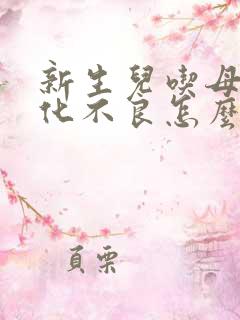 新生兒喫母
化不良怎麼
頁栗